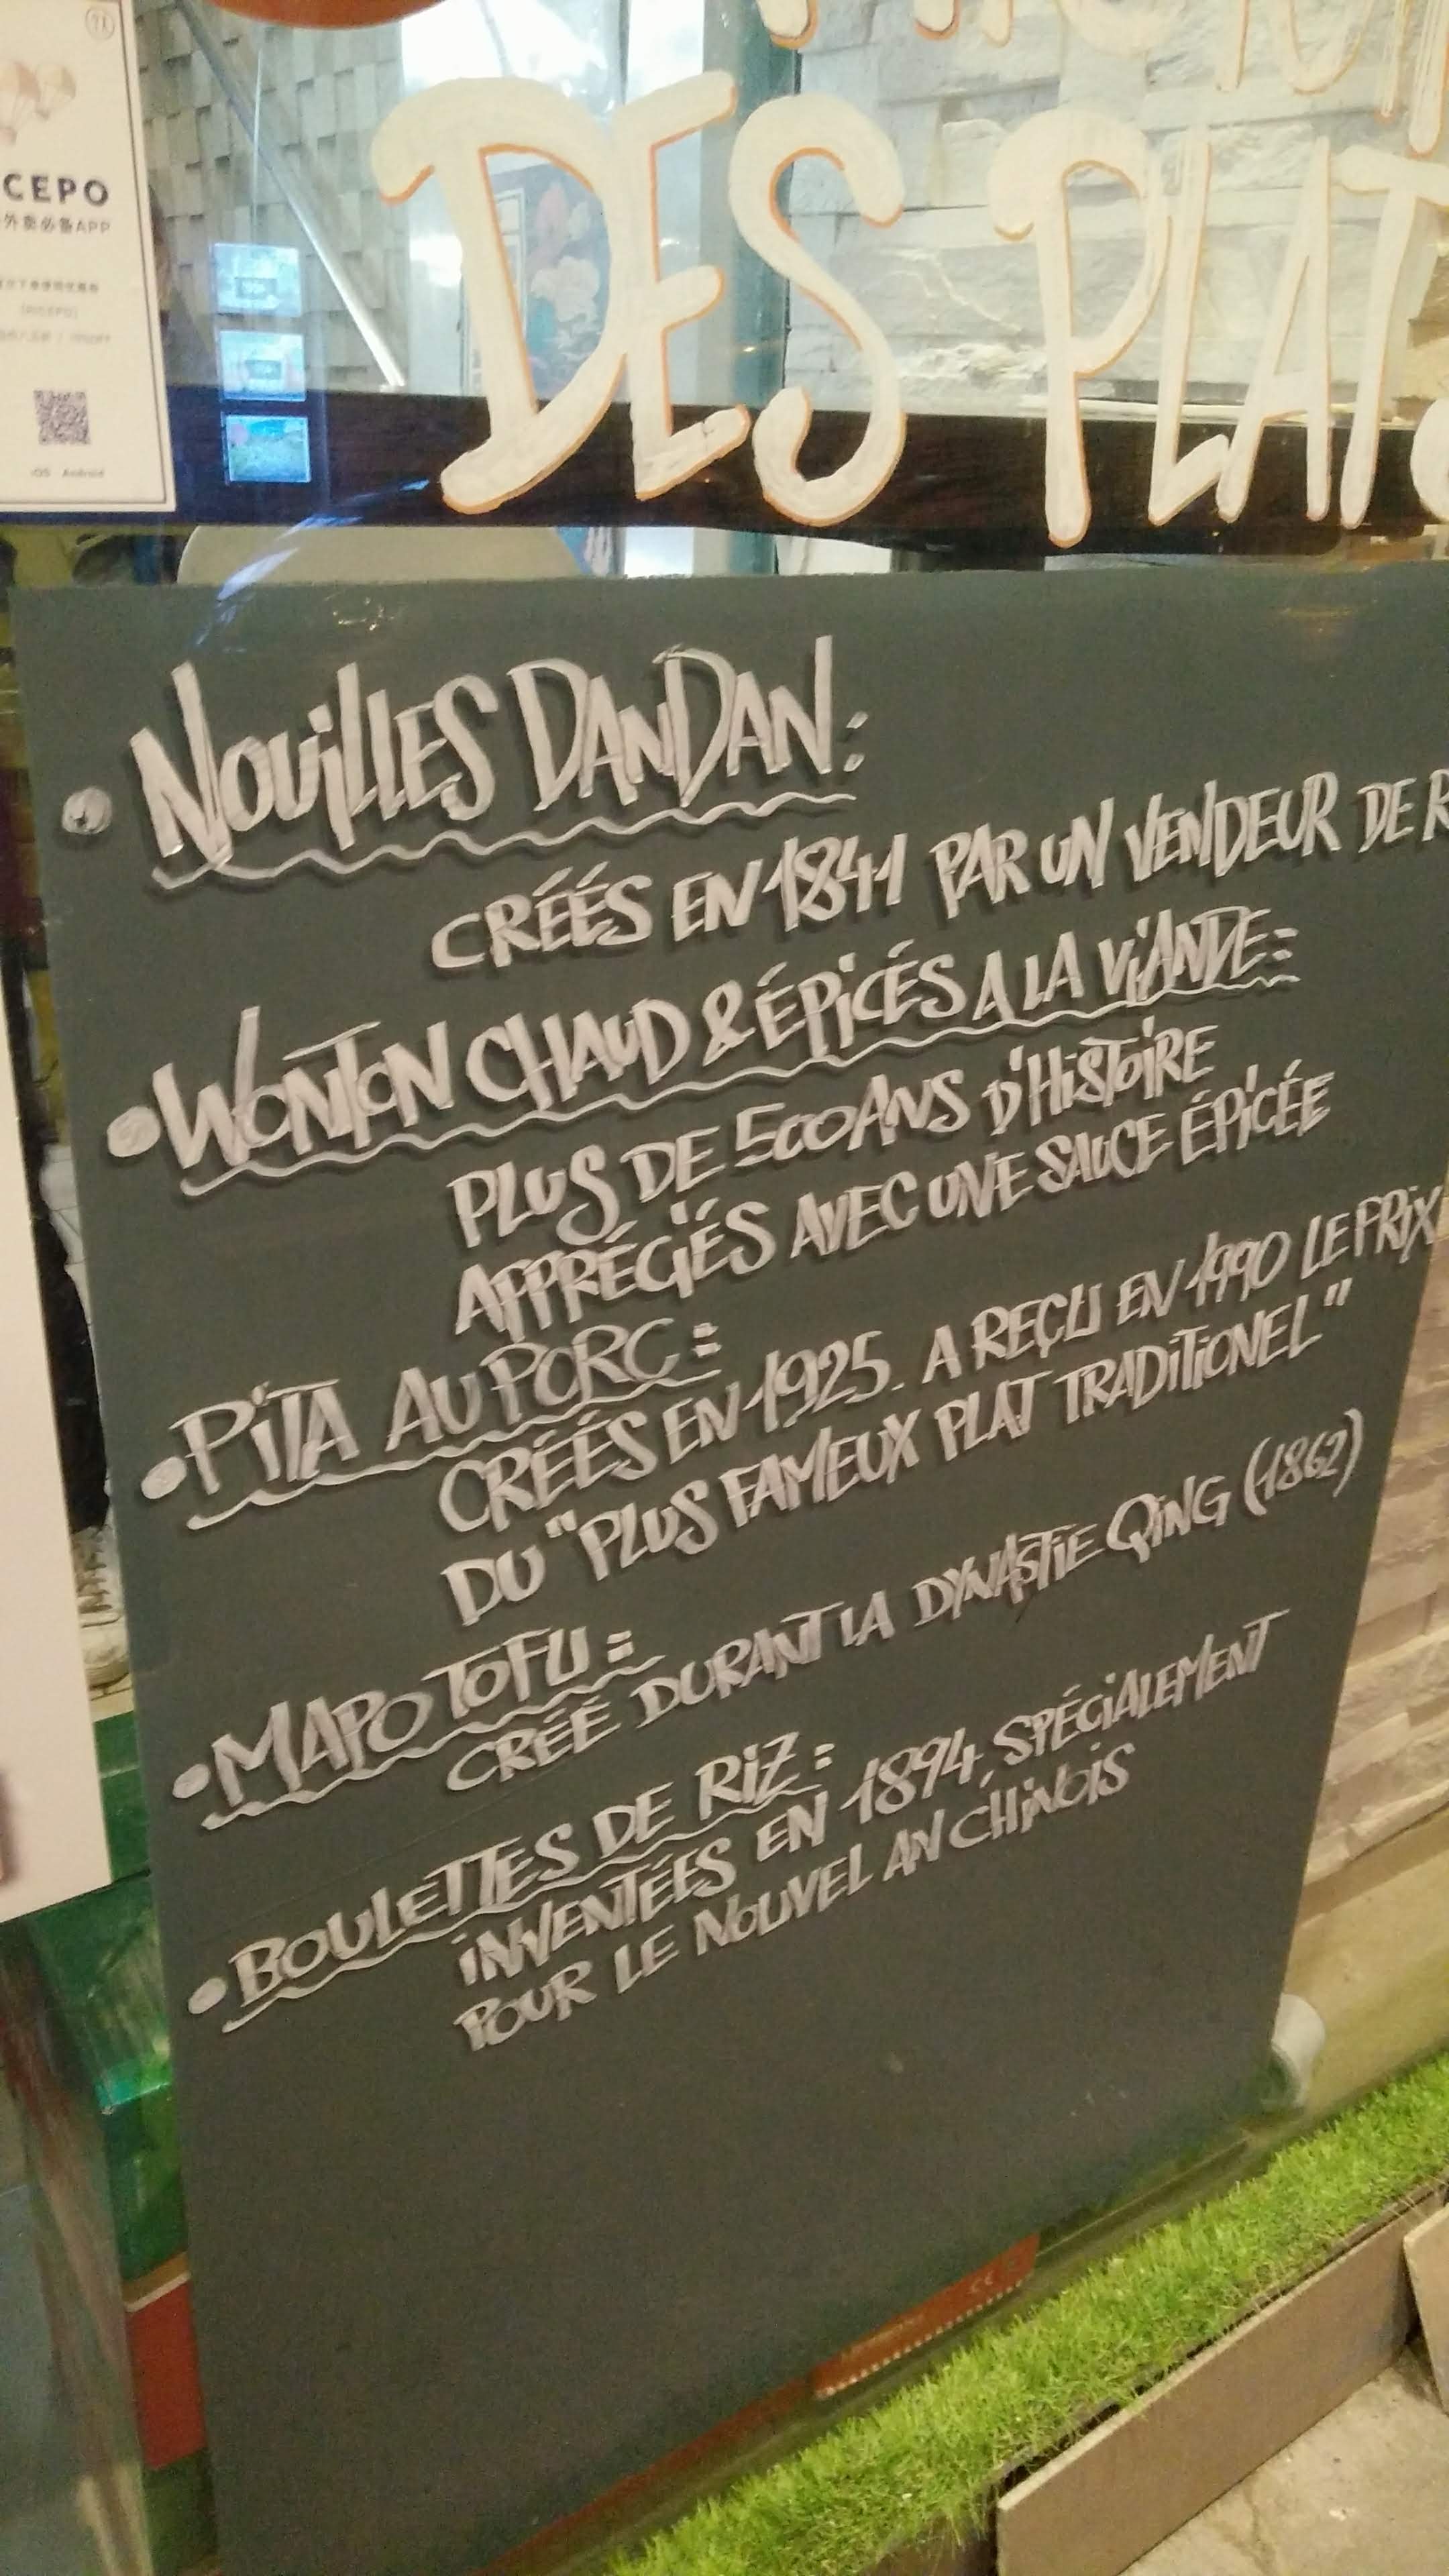 DES PLATS
CEPO
外卖必备APP
iOS Android
• NOUILLES DANDAN:
CRÉÉS EN 1841 PAR UN VENDEUR DE R
• WONTON CHAUD & ÉPICÉS A LA VIANDE:
PLUS DE 500 ANS D'HISTOIRE
APPRÉCIÉS AVEC UNE SAUCE ÉPICÉE
• PITA AU PORC:
CRÉÉS EN 1925. A REÇU EN 1990 LE PRIX
DU "PLUS FAMEUX PLAT TRADITIONEL"
• MAPO TOFU:
CRÉÉ DURANT LA DYNASTIE QING (1862)
• BOULETTES DE RIZ:
INVENTÉES EN 1894, SPÉCIALEMENT
POUR LE NOUVEL AN CHINOIS